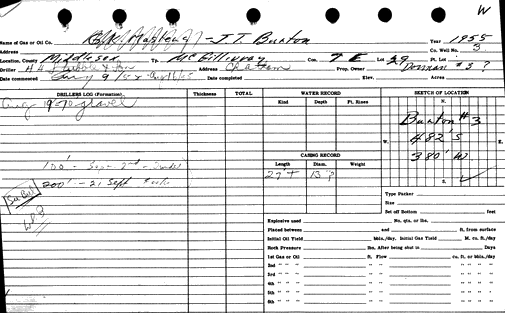 W
Name of Gas or Oil Co. J.T. Burton Year 1955
Address Co. Well No. 3
Location, County Middlesex Tp. McGillivray Con. 7 E Lot 29 Pt. Lot
Driller Address Chatham Prop. Owner Dorman #3 ?
Date commenced Aug 9/55 Date completed Elev. Acres
DRILLERS LOG (Formation) Thickness TOTAL WATER RECORD SKETCH OF LOCATION
Kind Depth Ft. Rises N.
Aug 19 70 gravel
Burton #3
W. 482' S E.
380' W
S.
CASING RECORD
Length Diam. Weight
27' 13"
100' - Sep - 2nd
200' - 21 Sept
Type Packer
Size
Set off Bottom feet
Explosive used No. qts. or lbs.
Placed between and ft. from surface
Initial Oil Yield Bbls./day, Initial Gas Yield M. cu. ft./day
Rock Pressure lbs. After being shut in Days
1st Gas or Oil ft. Flow cu. ft. or bbls./day
2nd " " " " " " "
3rd " " " " " " "
4th " " " " " " "
5th " " " " " " "
6th " " " " " " "